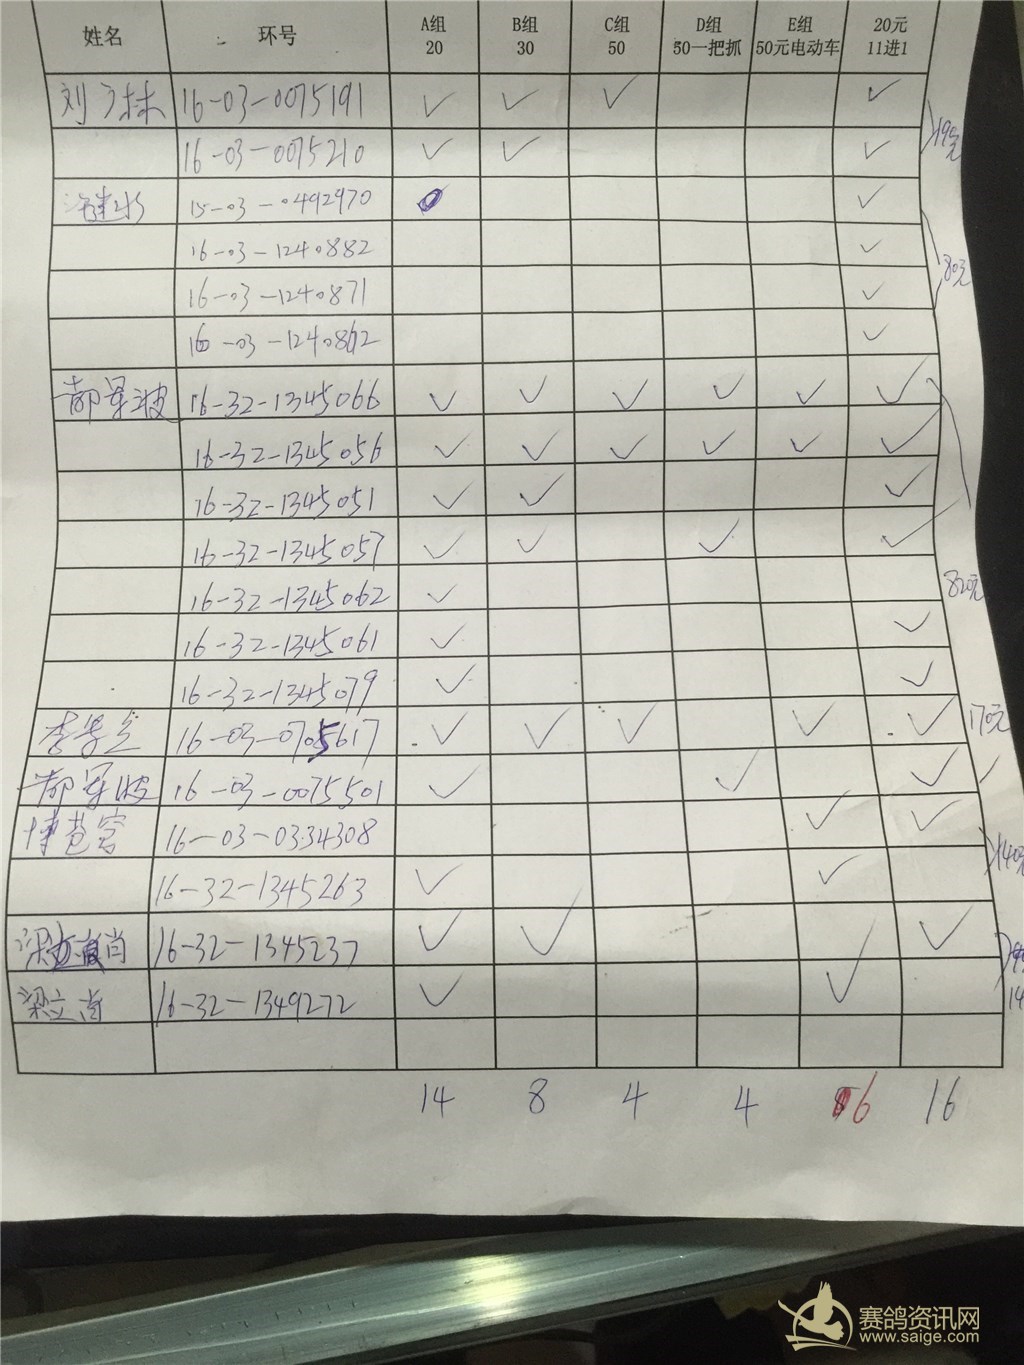 姓名 环号 A组 B组 C组 D组 E组 20元
20 30 50 50一把抓 50元电动车 11进1
16-03-0075191 ✓ ✓ ✓ ✓
16-03-0075210 ✓ ✓ ✓
15-03-0492970 ✓
16-03-1240882 ✓
16-03-1240871 ✓
80元
16-03-1240862 ✓
郝军波 16-32-1345066 ✓ ✓ ✓ ✓ ✓ ✓
16-32-1345056 ✓ ✓ ✓ ✓ ✓ ✓
16-32-1345051 ✓ ✓ ✓
16-32-1345057 ✓ ✓ ✓ ✓
820元
16-32-1345062 ✓
16-32-1345061 ✓ ✓
16-32-1345079 ✓ ✓
16-03-0705617 ✓ ✓ ✓ ✓ ✓ 170元
郝军波 16-03-0075501 ✓ ✓ ✓
16-03-0334308 ✓ ✓
16-32-1345263 ✓ ✓
16-32-1345237 ✓ ✓ ✓
梁立肖 16-32-1349272 ✓ ✓
14 8 4 4 6 16
赛鸽资讯网
www.saige.com